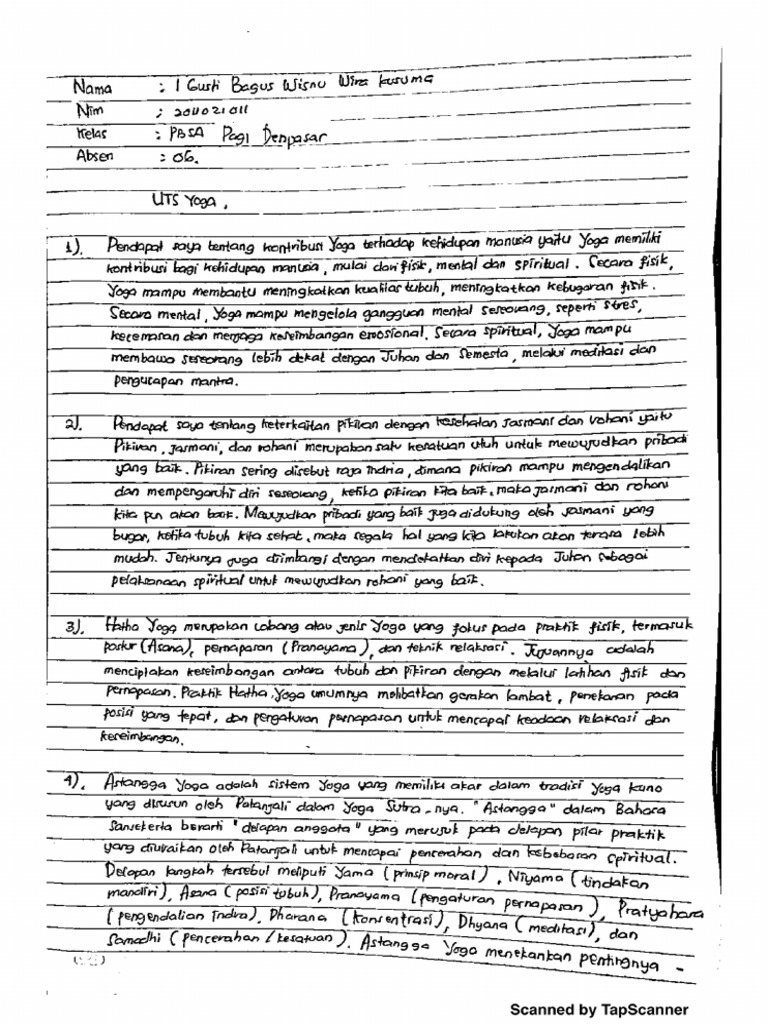 Nama : I Gusti Bagus Wisnu Wira Kusuma
Nim : 2011021011
Kelas : PBSA Pagi Denpasar
Absen : 06.
UTS Yoga.
1). Pendapat saya tentang kontribusi Yoga terhadap kehidupan manusia yaitu Yoga memiliki
kontribusi bagi kehidupan manusia, mulai dari fisik, mental dan spiritual. Secara fisik,
Yoga mampu membantu meningkatkan kualitas tubuh, meningkatkan kebugaran fisik.
Secara mental, Yoga mampu mengelola gangguan mental seseorang, seperti stres,
kecemasan dan menjaga keseimbangan emosional. Secara spiritual, Yoga mampu
membawa seseorang lebih dekat dengan Tuhan dan Semesta, melalui meditasi dan
pengucapan mantra.
2). Pendapat saya tentang keterkaitan pikiran dengan kesehatan jasmani dan rohani yaitu
Pikiran, jasmani, dan rohani merupakan satu kesatuan utuh untuk mewujudkan pribadi
yang baik. Pikiran sering disebut raja indria, dimana pikiran mampu mengendalikan
dan mempengaruhi diri seseorang, ketika pikiran kita baik, maka jasmani dan rohani
kita pun akan baik. Mewujudkan pribadi yang baik juga didukung oleh jasmani yang
bugar, ketika tubuh kita sehat, maka segala hal yang kita lakukan akan terasa lebih
mudah. Tentunya juga diimbangi dengan mendekatkan diri kepada Tuhan sebagai
pelaksanaan spiritual untuk mewujudkan rohani yang baik.
3). Hatha Yoga merupakan cabang atau jenis Yoga yang fokus pada praktik fisik, termasuk
postur (Asana), pernapasan (Pranayama), dan teknik relaksasi. Tujuannya adalah
menciptakan keseimbangan antara tubuh dan pikiran dengan melalui latihan fisik dan
pernapasan. Praktik Hatha Yoga umumnya melibatkan gerakan lambat, penekanan pada
posisi yang tepat, dan pengaturan pernapasan untuk mencapai keadaan relaksasi dan
keseimbangan.
4). Astangga Yoga adalah sistem Yoga yang memiliki akar dalam tradisi Yoga kuno
yang disusun oleh Patanjali dalam Yoga Sutra-nya. "Astangga" dalam Bahasa
Sansekerta berarti "delapan anggota" yang merujuk pada delapan pilar praktik
yang diuraikan oleh Patanjali untuk mencapai pencerahan dan kebebasan spiritual.
Delapan langkah tersebut meliputi Yama (prinsip moral), Niyama (tindakan
mandiri), Asana (posisi tubuh), Pranayama (pengaturan pernapasan), Pratyahara
(pengendalian indra), Dharana (konsentrasi), Dhyana (meditasi), dan
Samadhi (pencerahan/kesatuan). Astangga Yoga menekankan pentingnya -
Scanned by TapScanner